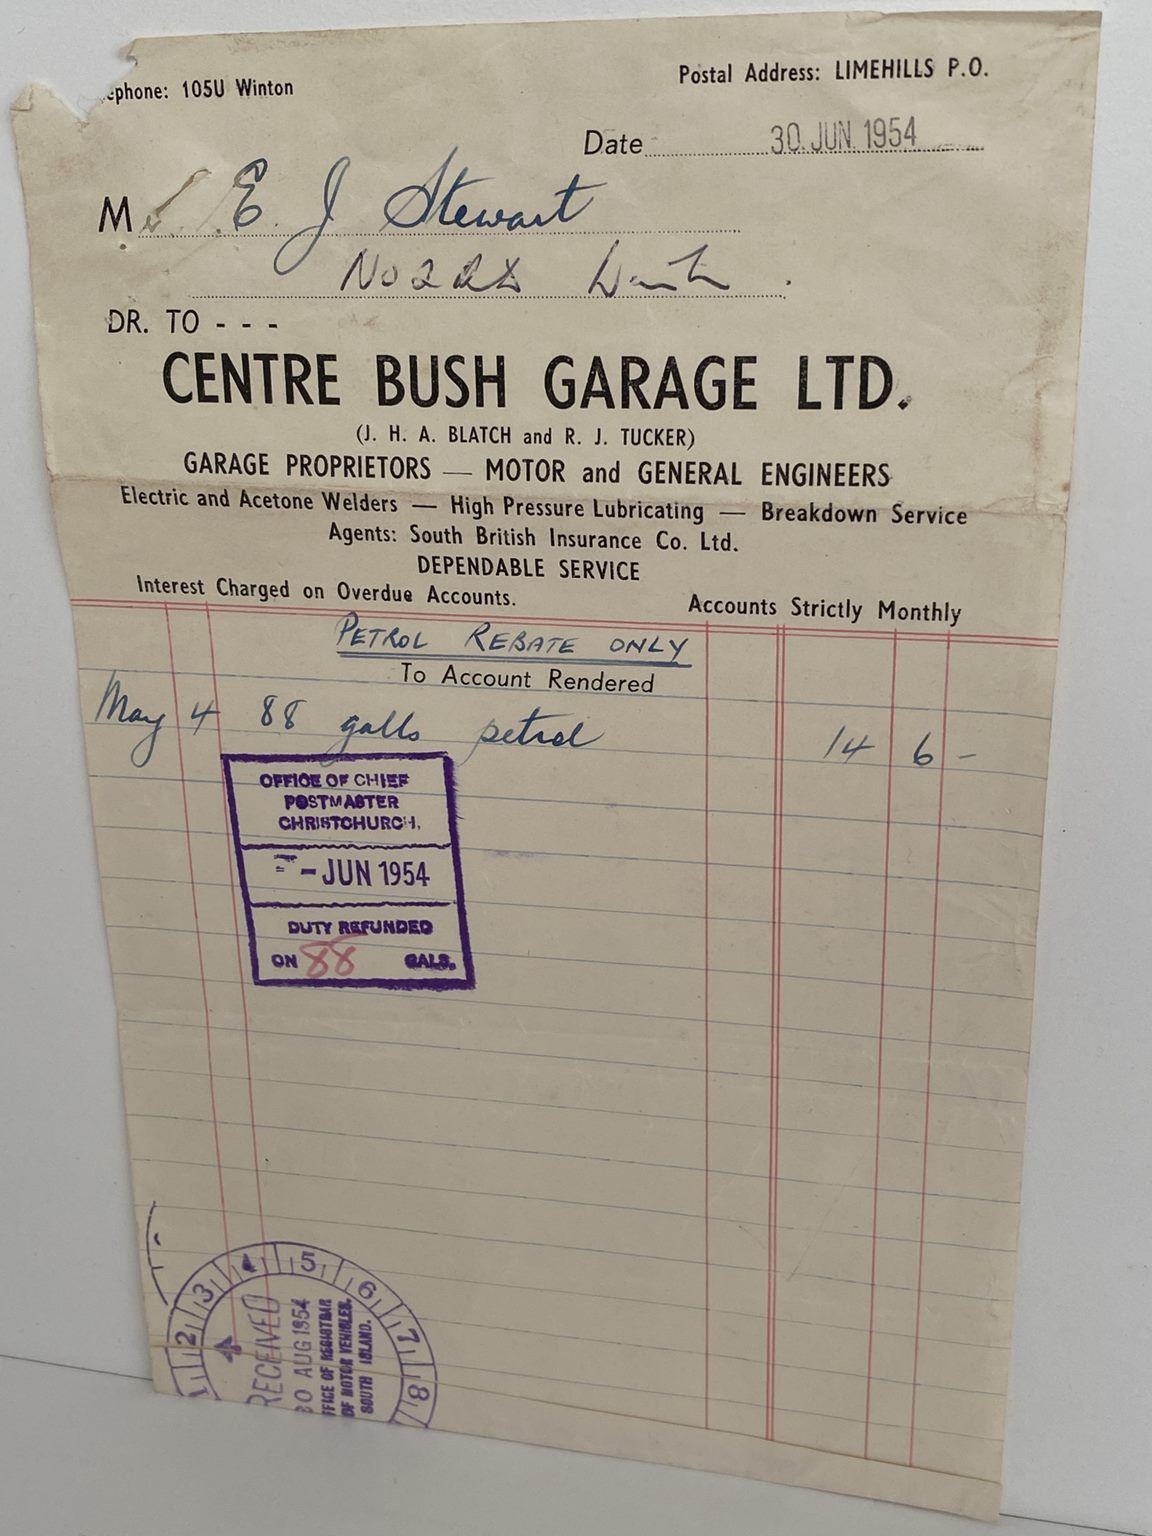 ephone: 105U Winton
Postal Address: LIMEHILLS P.O.
Date 30 JUN 1954
M E J Stewart
No 2
DR. TO - - -
CENTRE BUSH GARAGE LTD.
(J. H. A. BLATCH and R. J. TUCKER)
GARAGE PROPRIETORS — MOTOR and GENERAL ENGINEERS
Electric and Acetone Welders — High Pressure Lubricating — Breakdown Service
Agents: South British Insurance Co. Ltd.
DEPENDABLE SERVICE
Interest Charged on Overdue Accounts. Accounts Strictly Monthly
PETROL REBATE ONLY
To Account Rendered
May 4 88 galls petrol 14 6 -
OFFICE OF CHIEF
POSTMASTER
CHRISTCHURCH.
- JUN 1954
DUTY REFUNDED
ON 88 GALS.
1 2 3 4 5 6 7 8
RECEIVED
30 AUG 1954
FFICE OF REGISTRAR
OF MOTOR VEHICLES.
SOUTH ISLAND.